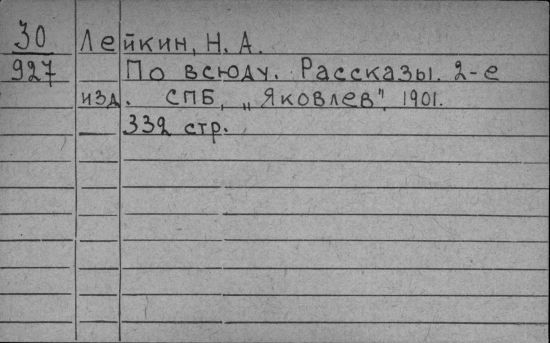 30 Лейкин, Н. А.
927 По всюду. Рассказы. 2-е
изд. СПБ, „Яковлев", 1901.
332 стр.